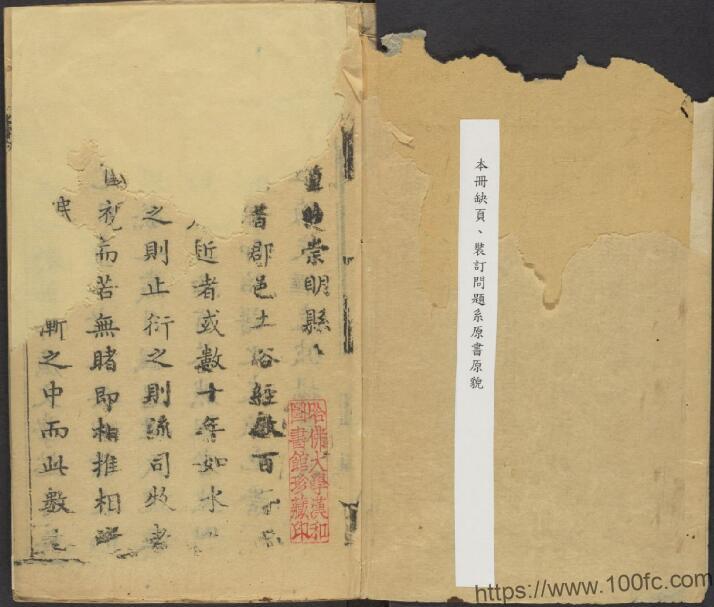 本冊缺頁、裝訂問題系原書原貌
崇明縣
昔郡邑土俗經數百
近者或數十年如水
之則止衍之則流司牧者
視而若無睹即相推相
民
漸之中而此數
哈佛大學漢和
圖書館珍藏印
https://www.100fc.com